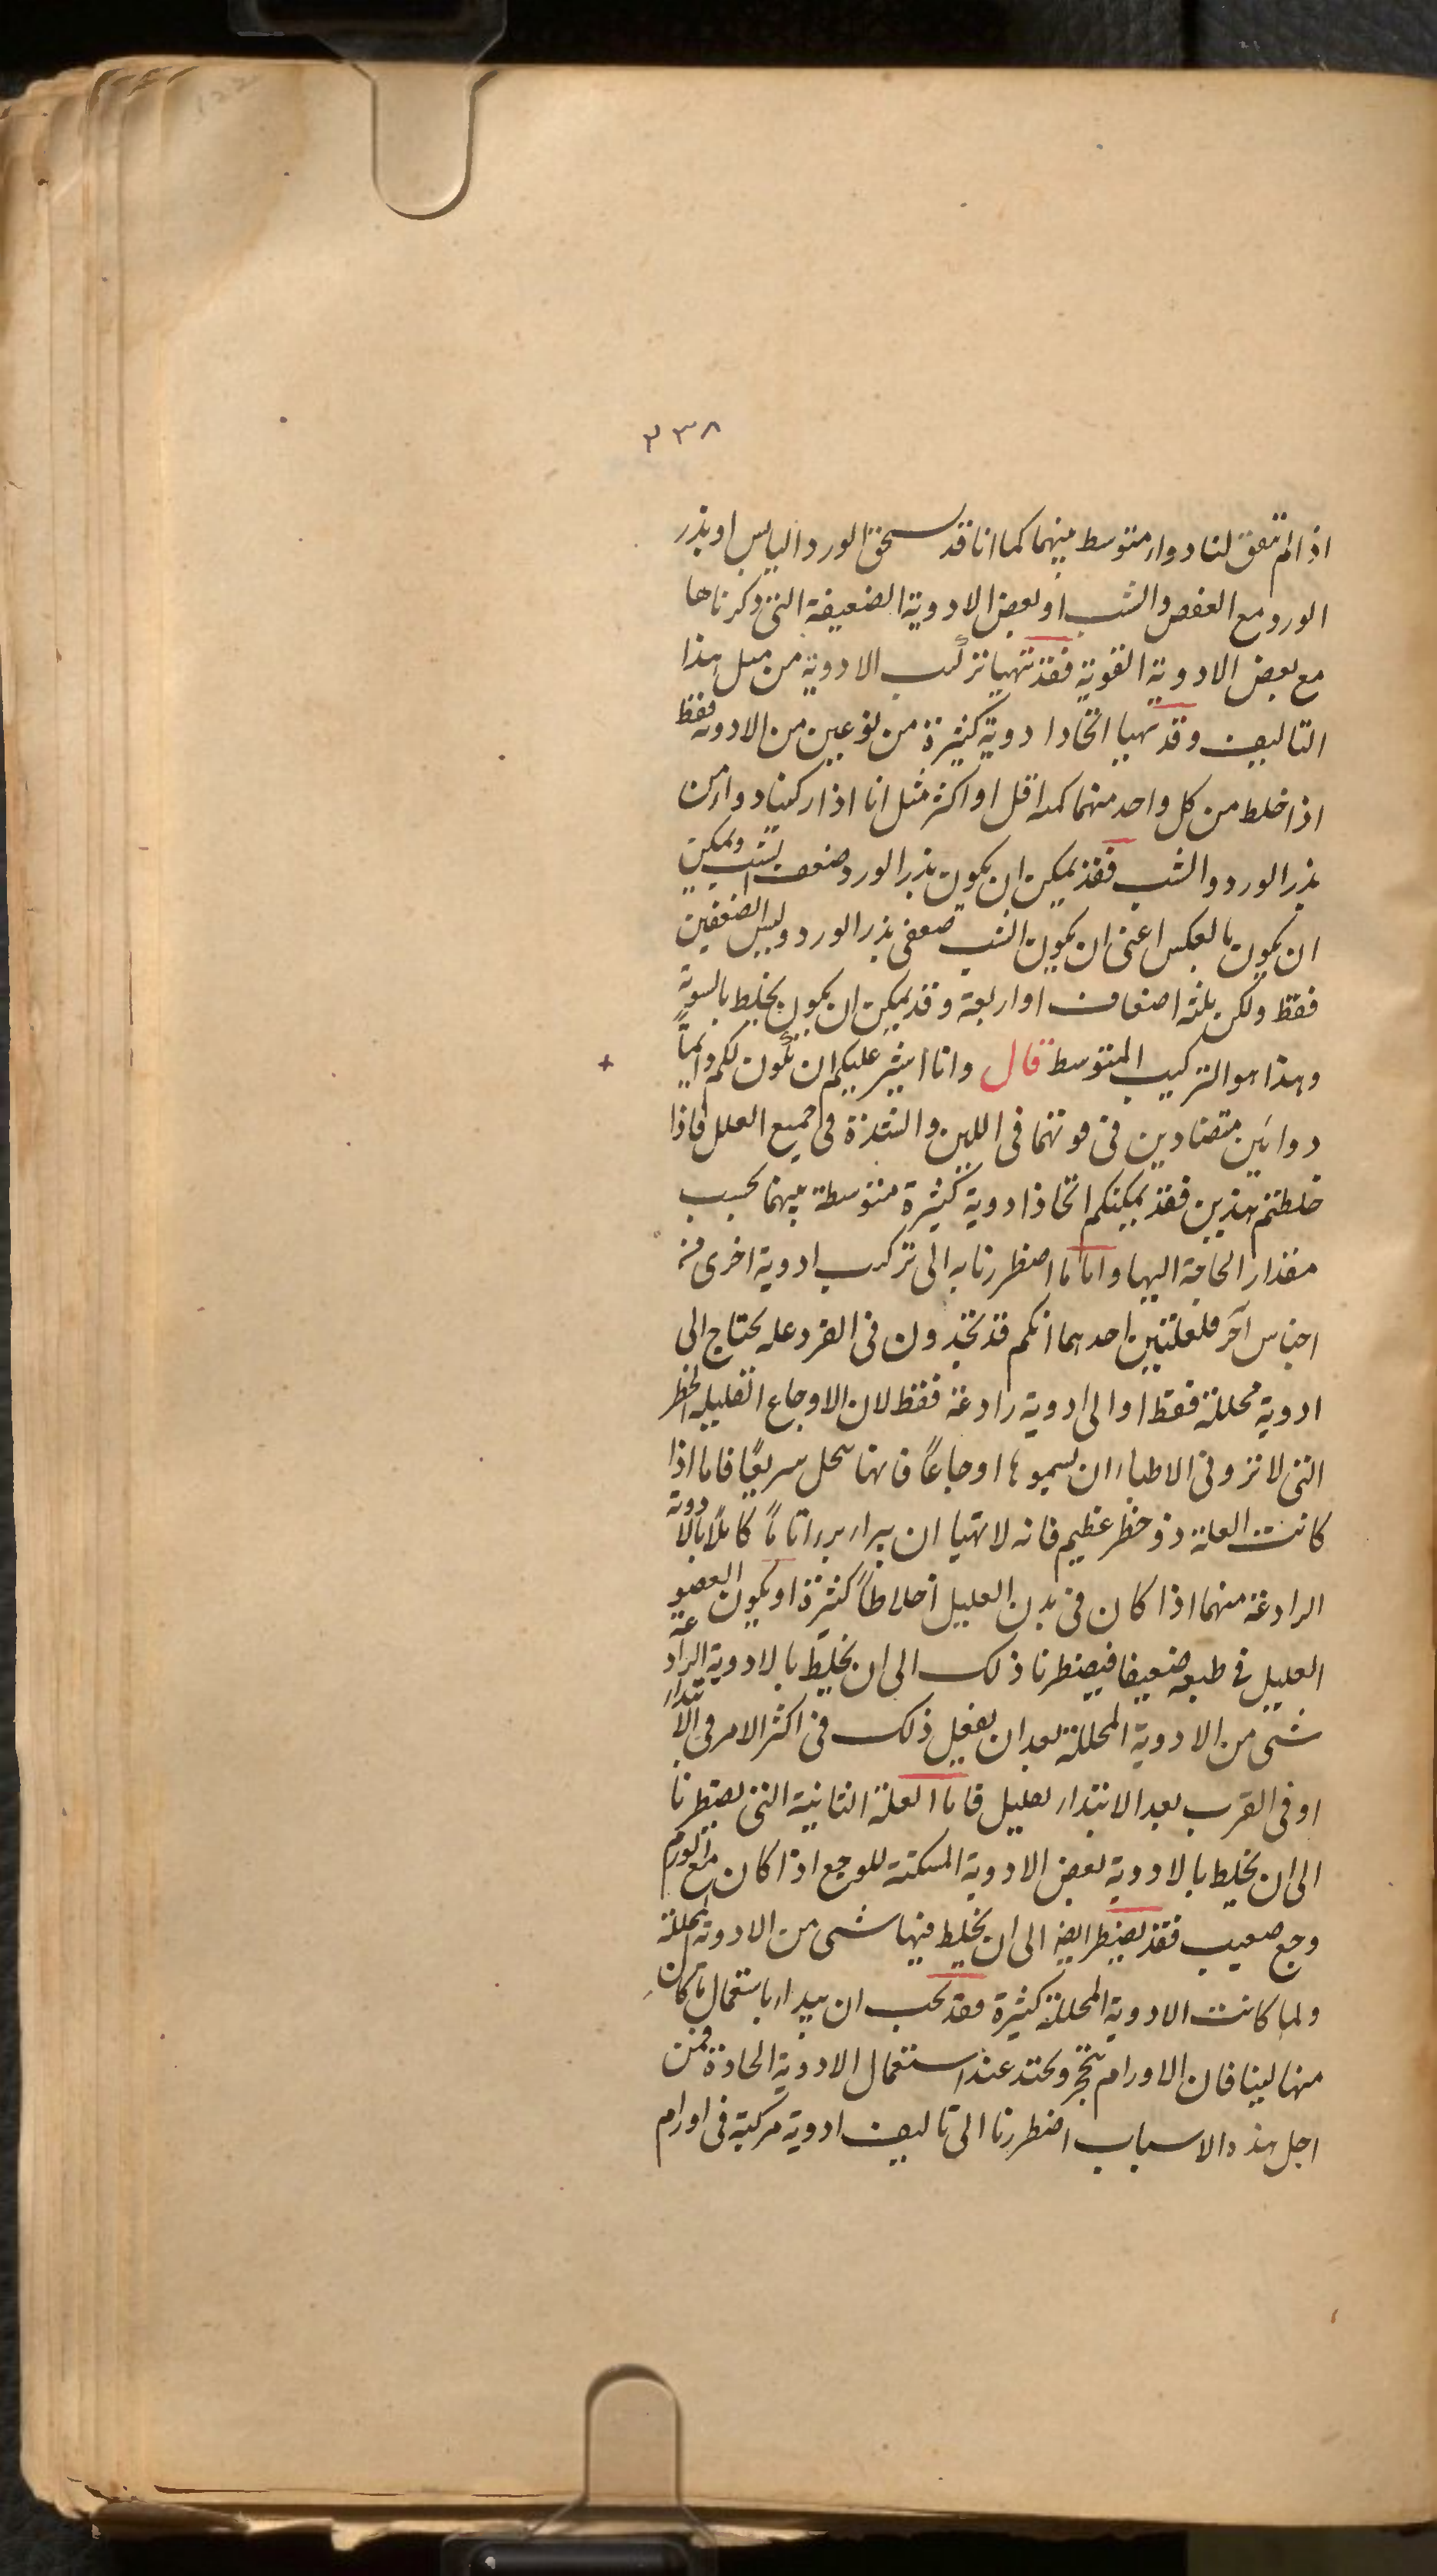 ٢٣٨
اذا لم تتفق لنا دواء متوسط بينهما كما انا قد نسحق الورد اليابس او بذر
الورد مع العفص والشب او بعض الادوية الضعيفة التى ذكرناها
مع بعض الادوية القوية فقد تتهيا تركيب الادوية من مثل هذا
التاليف وقد تهيا اتخاذ ادوية كثيرة من نوعين من الادوية فقط
اذا خلط من كل واحد منهما كمية اقل او اكثر مثل انا اذا ركبنا دواء من
بذر الورد والشب فقد يمكن ان يكون بذر الورد ضعف الشب ويمكن
ان يكون بالعكس اعنى ان يكون الشب ضعفى بذر الورد وليس الضعفين
فقط ولكن ثلثة اضعاف او اربعة وقد يمكن ان يكون يخلط بالسوية
وهذا هو التركيب المتوسط قال وانا اشير عليكم ان تكون لكم دائماً
دوائين متضادين فى قوتهما فى اللين والشدة فى جميع العلل فاذا
خلطتم هذين فقد يمكنكم اتخاذ ادوية كثيرة متوسطة بينهما بحسب
مقدار الحاجة اليها واما ما اضطررنا به الى تركيب ادوية اخرى من
اجناس آخر فلعلتين احدهما انكم قد تجدون فى الفرد علة يحتاج الى
ادوية محللة فقط او الى ادوية رادعة فقط لان الاوجاع القليلة الخطر
التى لا ترو فى الاطباء ان يسموها اوجاعاً فانها تنحل سريعًا فاما اذا
كانت العلة ذو خطر عظيم فانه لا تتهيا ان يبراء برءا تاماً كاملاً بالادوية
الرادعة منهما اذا كان فى بدن العليل اخلاطاً كثيرة او يكون العضو
العليل فى طبعه ضعيفا فيضطرنا ذلك الى ان يخلط بالادوية الرادعة
شىء من الادوية المحللة بعد ان يفعل ذلك فى اكثر الامر فى الابتداء
او فى القرب بعد الابتداء بقليل فاما العلة الثانية التى يضطرنا
الى ان يخلط بالادوية بعض الادوية المسكنة للوجع اذا كان مع الورم
وجع صعيب فقد يضطر ايضا الى ان يخلط فيها شىء من الادوية المحللة
ولما كانت الادوية المحللة كثيرة فقد يجب ان يبداء باستعمال ما كان
منها لينا فان الاورام تتحجر وتحتد عند استعمال الادوية الحادة فمن
اجل هذه الاسباب اضطررنا الى تاليف ادوية مركبة فى اورام